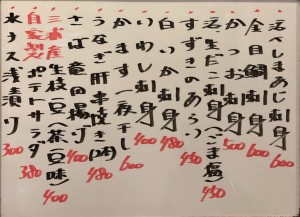 活〆しまあじ刺身 600
金目鯛刺身 600
かつお刺身 500
活生だこ刺身(ごま塩) 450
すずきのあらい 480
白いか刺身
いわし刺身 400
かます一夜干し
うなぎ肝串焼き 480
さば竜田揚げ 400
三浦産生枝豆(茶豆味) 400
自家製ポテトサラダ 380
水ナス浅漬け 300